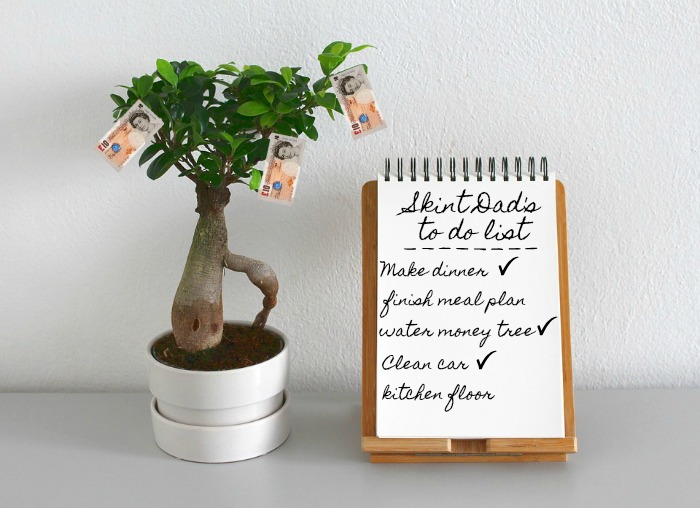 £10
£10
£10
Skint Dad's
to do list
Make dinner ✓
finish meal plan
water money tree ✓
Clean car ✓
kitchen floor